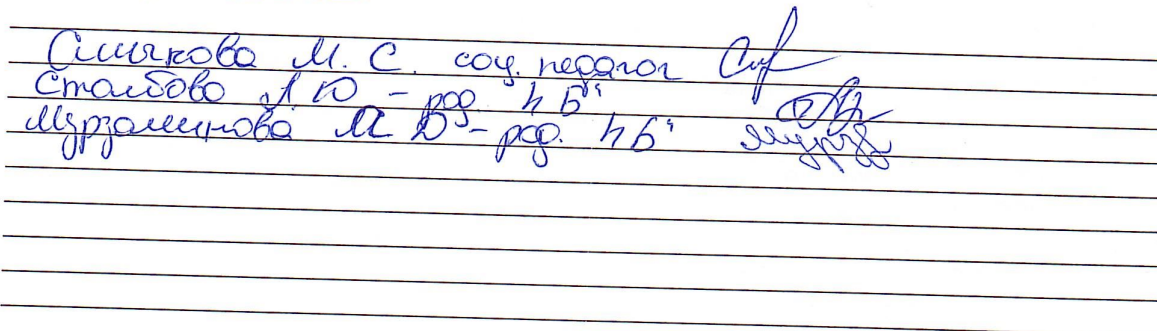 Смыкова М. С. соц. педагог
Столбова Л Ю - род. 4 Б"
Мурзаминова М Ю - род. 4 Б"